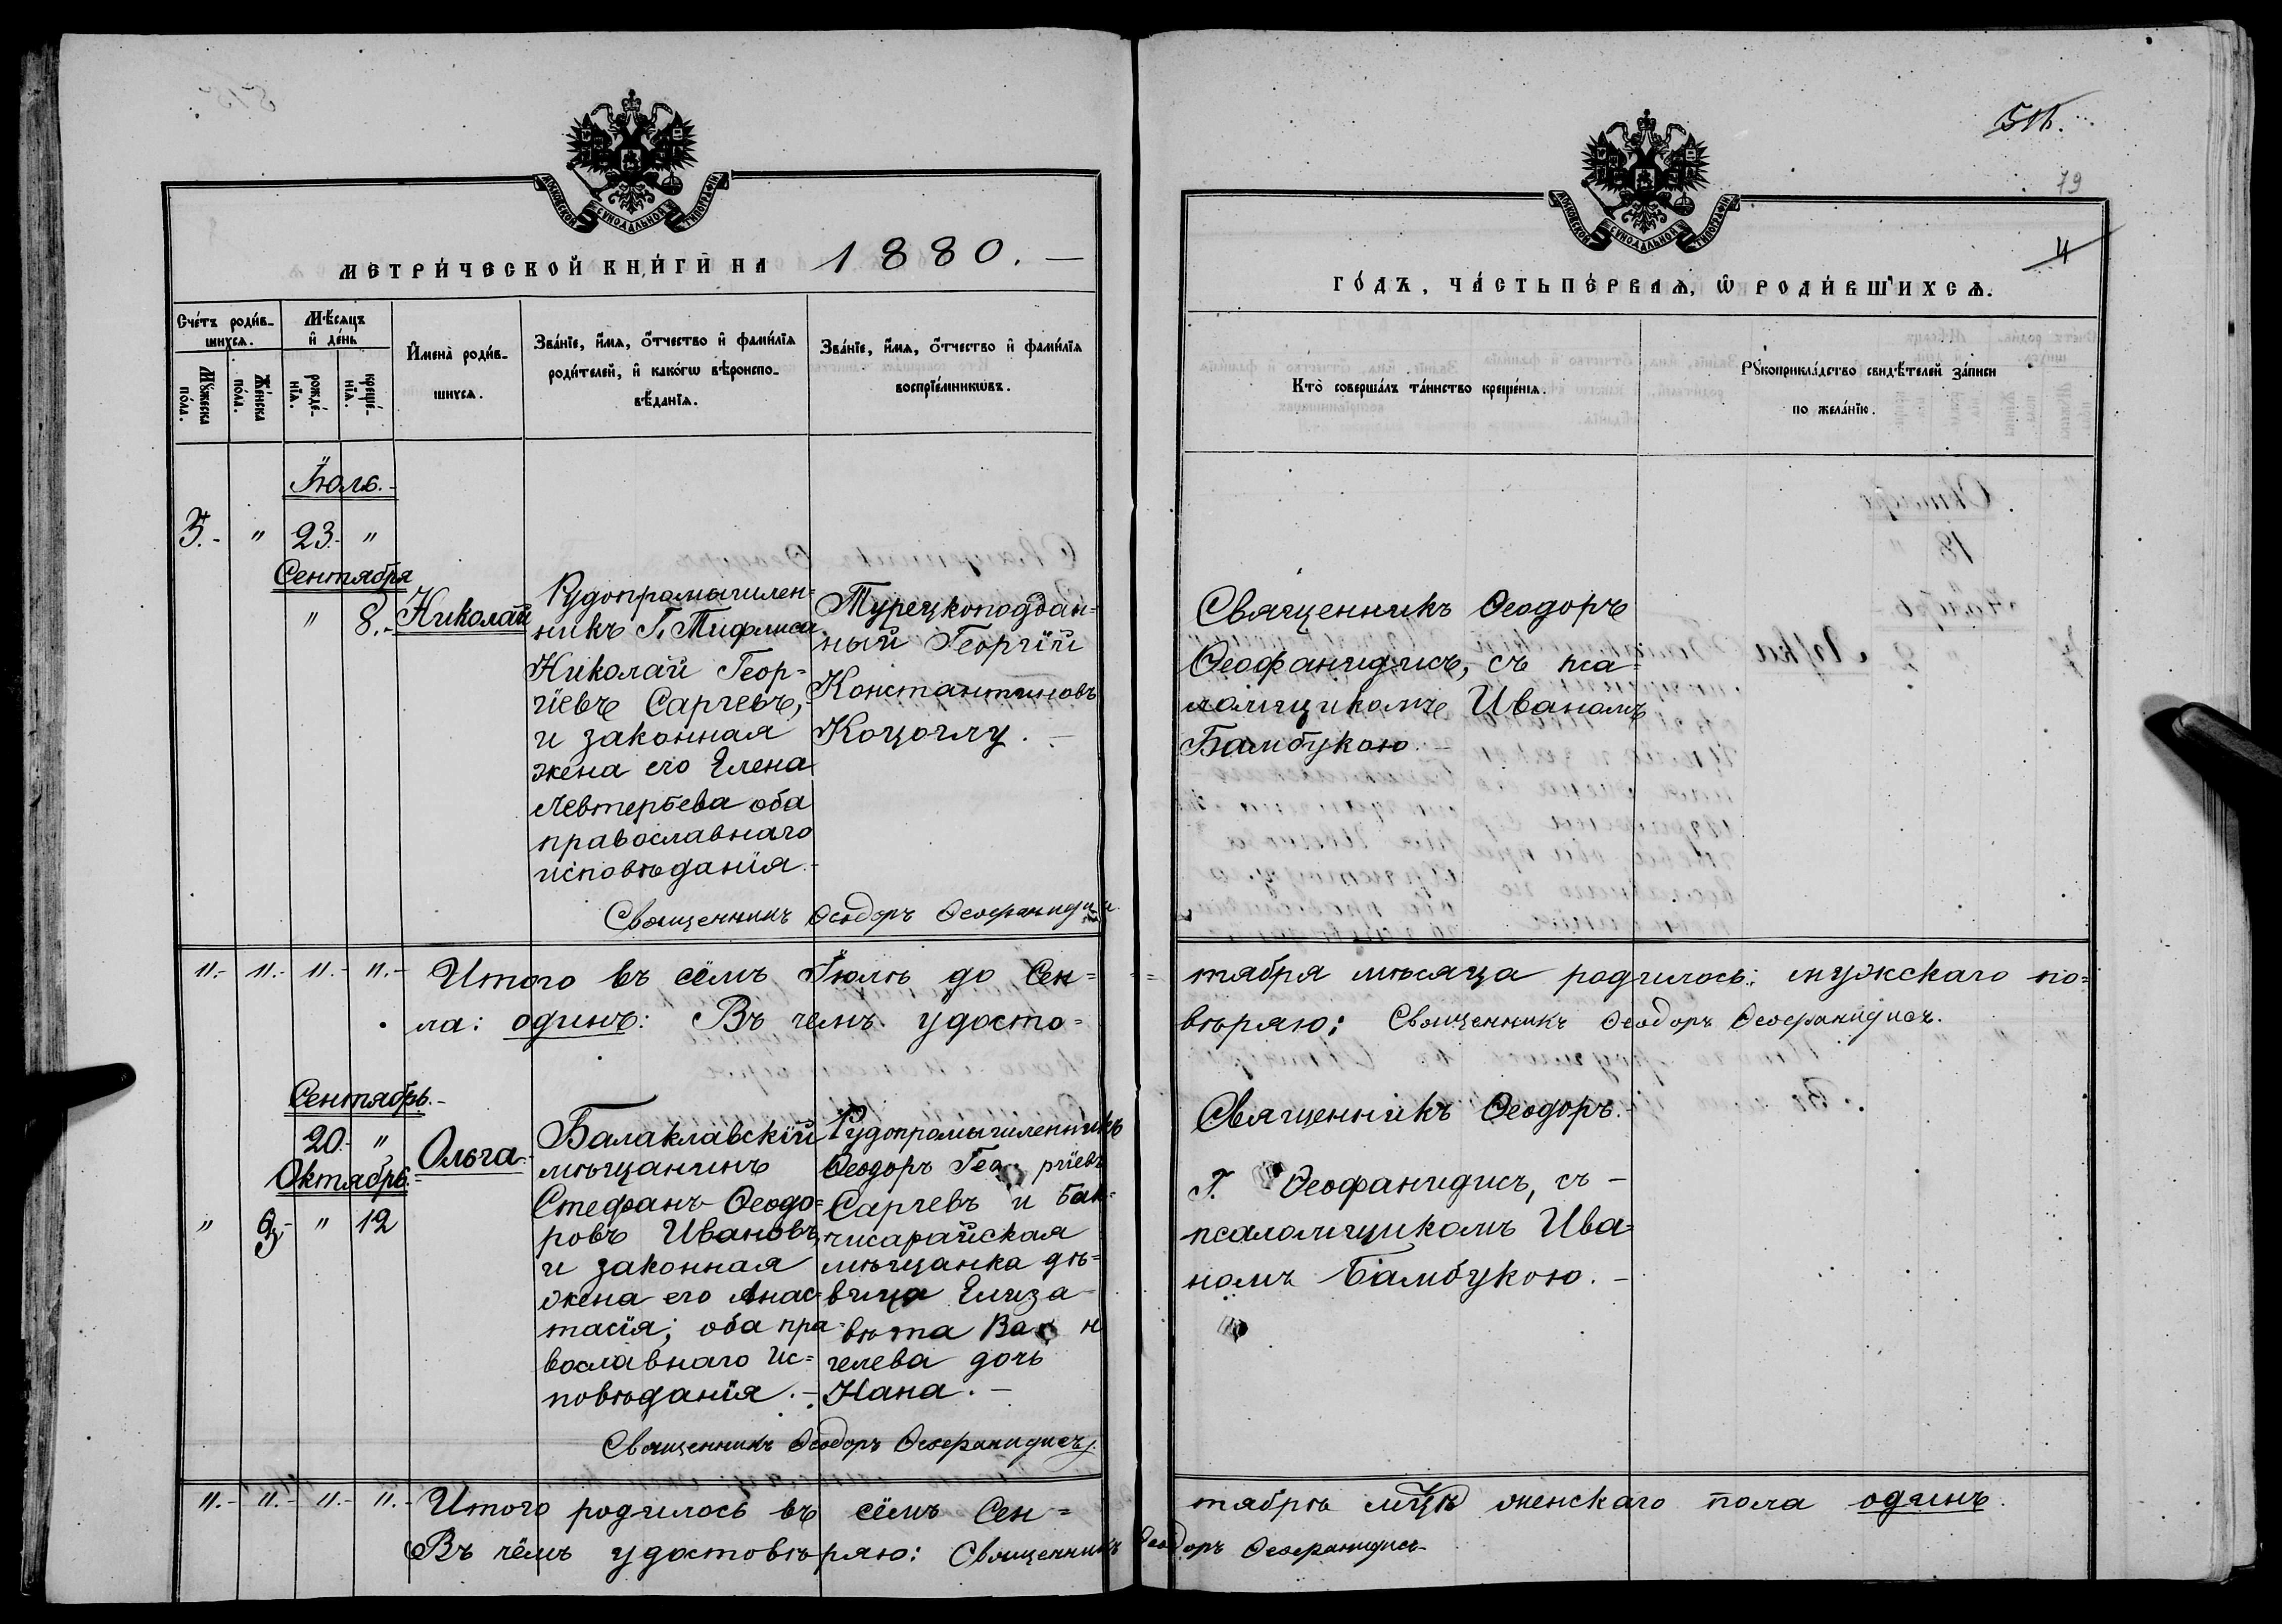 МОСКОВСКОЙ СѴНОДАЛЬНОЙ ТИПОГРАФІИ
МЕТРИ́ЧЕСКОЙ КНИ́ГИ НА 1880.
Сче́тъ роди́в-
шихсѧ.
Мꙋ́жеска
по́ла.
Же́нска
пола.
Мѣ́сѧцъ
и҆ де́нь
рожде́-
нїѧ.
креще́-
нїѧ.
И҆мена̀ роди́в-
шихсѧ.
Зва́нїе, и҆́мѧ, ѻ҆́тчество и҆ фами́лїѧ
роди́телей, и҆ како́гѡ вѣроиспо-
вѣ́данїѧ.
Зва́нїе, и҆́мѧ, ѻ҆́тчество и҆ фами́лїѧ
воспрїе́мникѡвъ.
Іюль.
3.- " 23.- "
Сентября
" 8.-
Николай
Рудопромышлен=
никъ Г. Тифлиса
Николай Геор-
гіевъ Саргевъ,
и законная
жена его Елена
Левтерьева оба
православнаго
исповѣданія.-
Турецкоподдан=
ный Георгій
Константиновъ
Коцоглу.-
Священникъ Ѳеодоръ Ѳеофанидисъ.
".- ".- ".- ".- Итого въ сёмъ Іюлѣ до Сен=
ла: одинъ: Въ чемъ удосто=
Сентябрь.-
20. "
Октябрь.
" " 12
Ольга.
Балаклавскій
мѣщанинъ
Стефанъ Ѳеодо=
ровъ Ивановъ,
и законная
жена его Анас-
тасія; оба пра-
вославнаго ис=
повѣданія.-
Рудопромышленникъ
Ѳеодоръ Георгіевъ
Саргевъ и Бах-
чисарайская
мѣщанка дѣ=
вица Елиза-
вѣта
гелева дочь
Нана.-
Священникъ Ѳеодоръ Ѳеофанидисъ.
".- ".- ".- ".- Итого родилось въ сёмъ Сен=
Въ чёмъ удостовѣряю: Священникъ Ѳеодоръ Ѳеофанидисъ
79
4
МОСКОВСКОЙ СѴНОДАЛЬНОЙ ТИПОГРАФІИ
ГО́ДЪ, ЧА́СТЬ ПЕ́РВАѦ, Ѡ҆ РОДИ́ВШИХСѦ.
Кто̀ соверша́лъ та́инство креще́нїѧ.
Рꙋкоприкла́дство свидѣ́телей за́писи
по жела́нїю.
Священникъ Ѳеодоръ
Ѳеофанидисъ, съ пса-
ломщикомъ Иваномъ
Бамбукою.-
= тября мѣсяца родилось: мужскаго по=
вѣряю: Священникъ Ѳеодоръ Ѳеофанидисъ.
Священникъ Ѳеодоръ.
Г. Ѳеофанидисъ, съ -
псаломщикомъ Ива=
номъ Бамбукою.-
тябрѣ мцѣ женскаго пола одинъ.